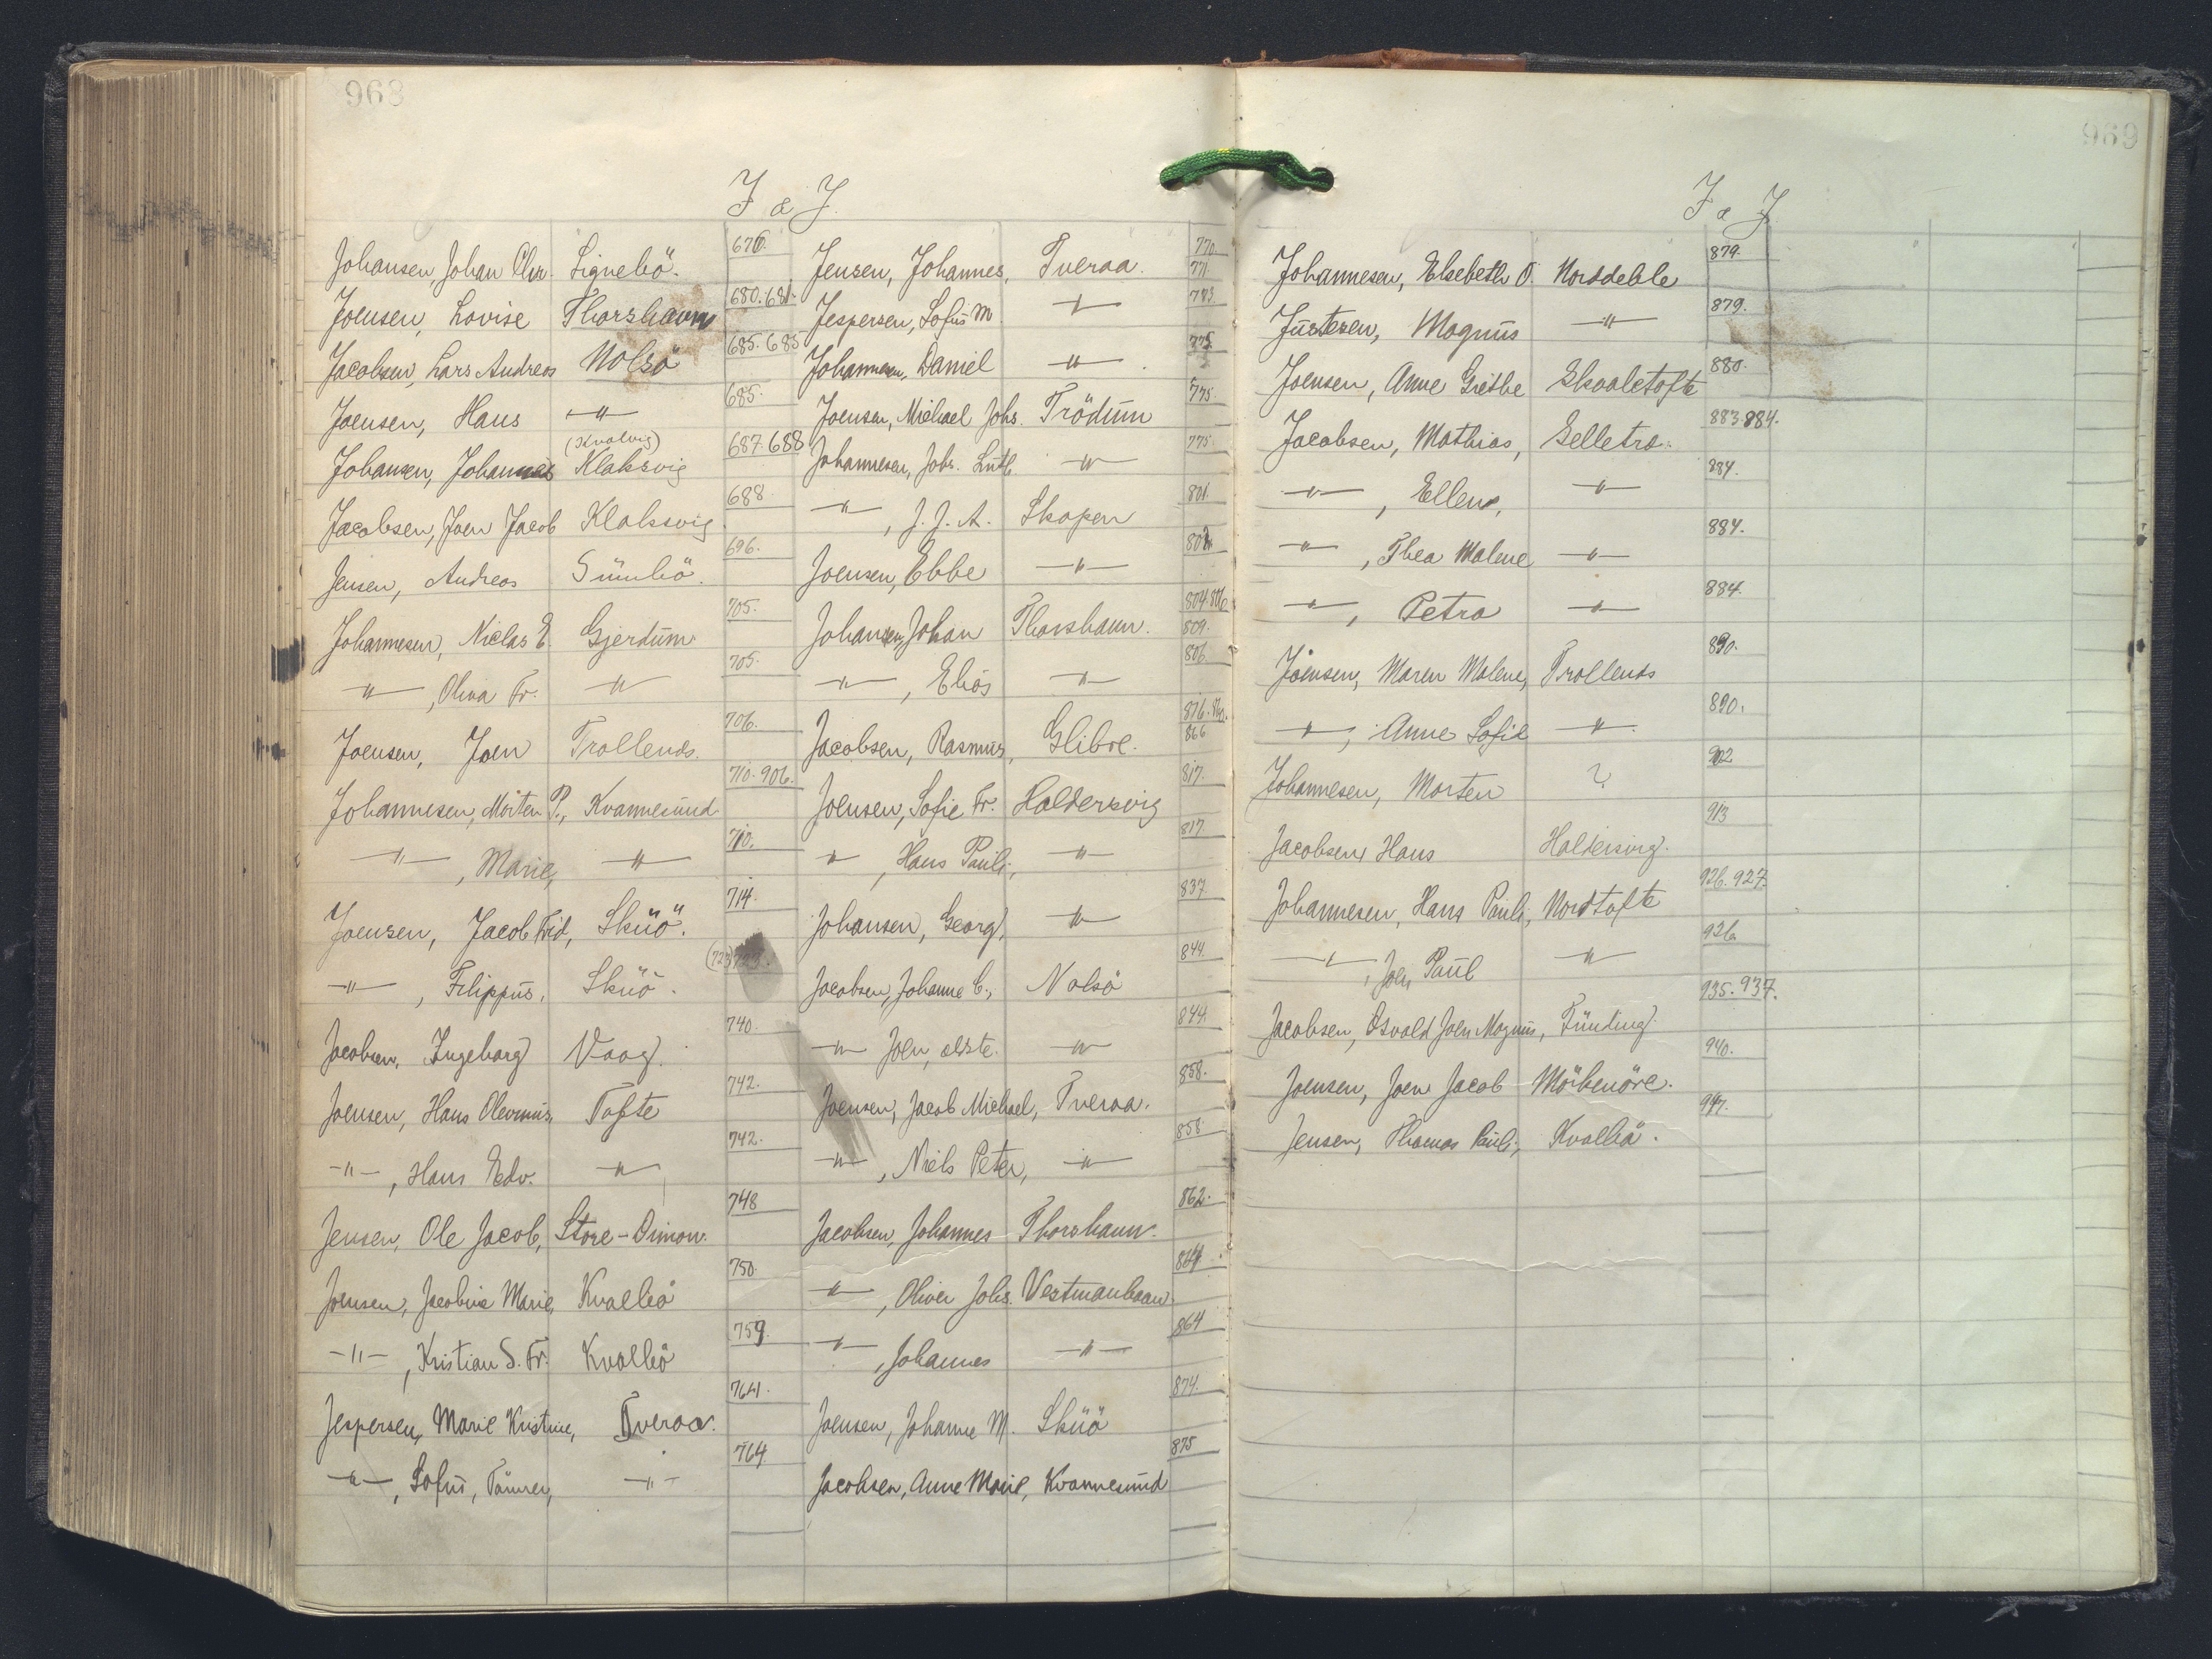 968
I & J.
Johansen, Johan Chr. Signebö. 676.
Joensen, Lovise Thorshavn 680. 681.
Jacobsen, Lars Andreas Nolsö 685. 685
Joensen, Hans -"- 685.
(Kvalvig)
Johansen, Johannes Klaksvig 687. 688
Jacobsen, Joen Jacob Klaksvig. 688.
Jensen, Andreas Sumbö. 696.
Johannesen, Niclas E. Gjerdum 705.
-"-, Oliva Fr. -"- 705.
Joensen, Joen Trollends. 706.
Johannesen, Morten P., Kvannesund 710. 906.
-"-, Marie, -"- 710.
Joensen, Jacob Frid, Skuö. 714.
-"-, Filippus, Skuö. (723) 723.
Jacobsen, Ingeborg Vaag. 740.
Joensen, Hans Olevinus, Tofte 742.
-"-, Hans Edv. -"- 742.
Jensen, Ole Jacob, Store-Dimon. 748
Joensen, Jacobine Marie, Kvalbö 750.
-"-, Kristian S. Fr. Kvalbö 759.
Jespersen, Marie Kristine, Tveraa. 764.
-"-, Sofus, Tömrer, -"- 764
Jensen, Johannes, Tveraa. 770. 771.
Jespersen, Sofus M -"- 773.
Johannesen, Daniel -"- 775.
Joensen, Michael Johs. Trödum 775.
Johannesen, Johs. Luth -"- 775.
-"-, J. J. A. Skopen 801.
Joensen, Ebbe -"- 802.
Johansen, Johan Thorshavn. 804. 806 809.
-"-, Elias -"- 806.
Jacobsen, Rasmus, Glibre. 816. 866
Joensen, Sofie Fr. Haldersvig 817.
-"-, Hans Pauli, -"- 817.
Johansen, Georg, -"- 837.
Jacobsen, Johanne C., Nolsö 844.
-"- Joen, ældste -"- 844.
Joensen, Jacob Michael, Tveraa. 858.
-"-, Niels Peter, -"- 858.
Jacobsen, Johannes Thorshavn. 862.
-"-, Oliver Johs. Vestmanhavn 864.
-"-, Johannes -"- 864
Joensen, Johanne M. Skuö 874.
Jacobsen, Anne Marie, Kvannesund 875
969
I & J
Johannesen, Elsebeth O. Norddeble 879.
Justesen, Magnus -"- 879.
Joensen, Anne Grethe Skaaletofte 880.
Jacobsen, Mathias, Selletra. 883. 884.
-"-, Ellen, -"- 884.
-"-, Thea Malene -"- 884.
-"-, Petra -"- 884.
Joensen, Maren Malene, Trollends 890.
-"-, Anne Sofie -"- 890.
Johannesen, Morten ? 902
Jacobsen, Hans Haldersvig. 913
Johannesen, Hans Pauli, Nordtofte 926. 927.
-"-, Joen Paul -"- 926.
Jacobsen, Osvald Joen Magnus, Funding. 935. 937.
Joensen, Joen Jacob Mörkenöre. 940.
Jensen, Thomas Pauli, Kvalbö. 947.